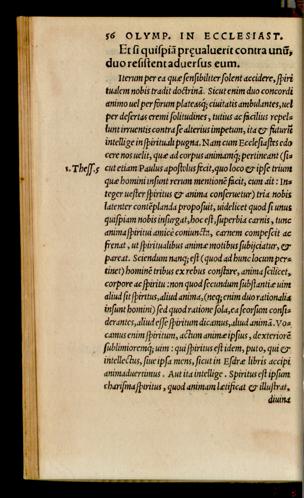 56 OLYMP. IN ECCLESIAST.
Et si quispiã pręualuerit contra unũ,
duo resistent aduersus eum.
Iterum per ea quæ sensibiliter solent accidere, spiri
tualem nobis tradit doctrinã. Sicut enim duo concordi
animo uel per forum plateasq; ciuitatis ambulantes, uel
per desertas eremi solitudines, tutius ac facilius repel-
lunt irruentis contra se alterius impetum, ita & futurũ
intellige in spirituali pugna. Nam cum Ecclesiastes edo
cere nos uelit, quæ ad corpus animamq; pertineant (si-
1. Thess. 5 cut etiam Paulus apostolus fecit, quo loco & ipse trium
quæ homini insunt rerum mentionẽ facit, cum ait: In-
teger uester spiritus & anima conseruetur) tria nobis
latenter contẽplanda proposuit, uidelicet quod si unus
quispiam nobis insurgat, hoc est, superbia carnis, tunc
anima spiritui amicè coniuncta, carnem compescit ac
frenat, ut spiritualibus animæ motibus subijciatur, &
pareat. Sciendum nanq; est (quod ad hunc locum per-
tinet) hominẽ tribus ex rebus constare, anima scilicet,
corpore ac spiritu: non quod secundum substantiã uim
aliud sit spiritus, aliud anima, (neq; enim duo rationalia
insunt homini) sed quod ratione sola, ea seorsum consi-
derantes, aliud esse spiritum dicamus, aliud animã. Vo-
camus enim spiritum, actum animæ ipsus, dexteriorẽ
sublimioremq; uim: qui spiritus est idem, puto, qui &
intellectus, siue ipsa mens, sicut in Esdræ libris accipi
animaduertimus. Aut ita intellige. Spiritus est ipsum
charisma spiritus, quod animam lætificat & illustrat,
diuina